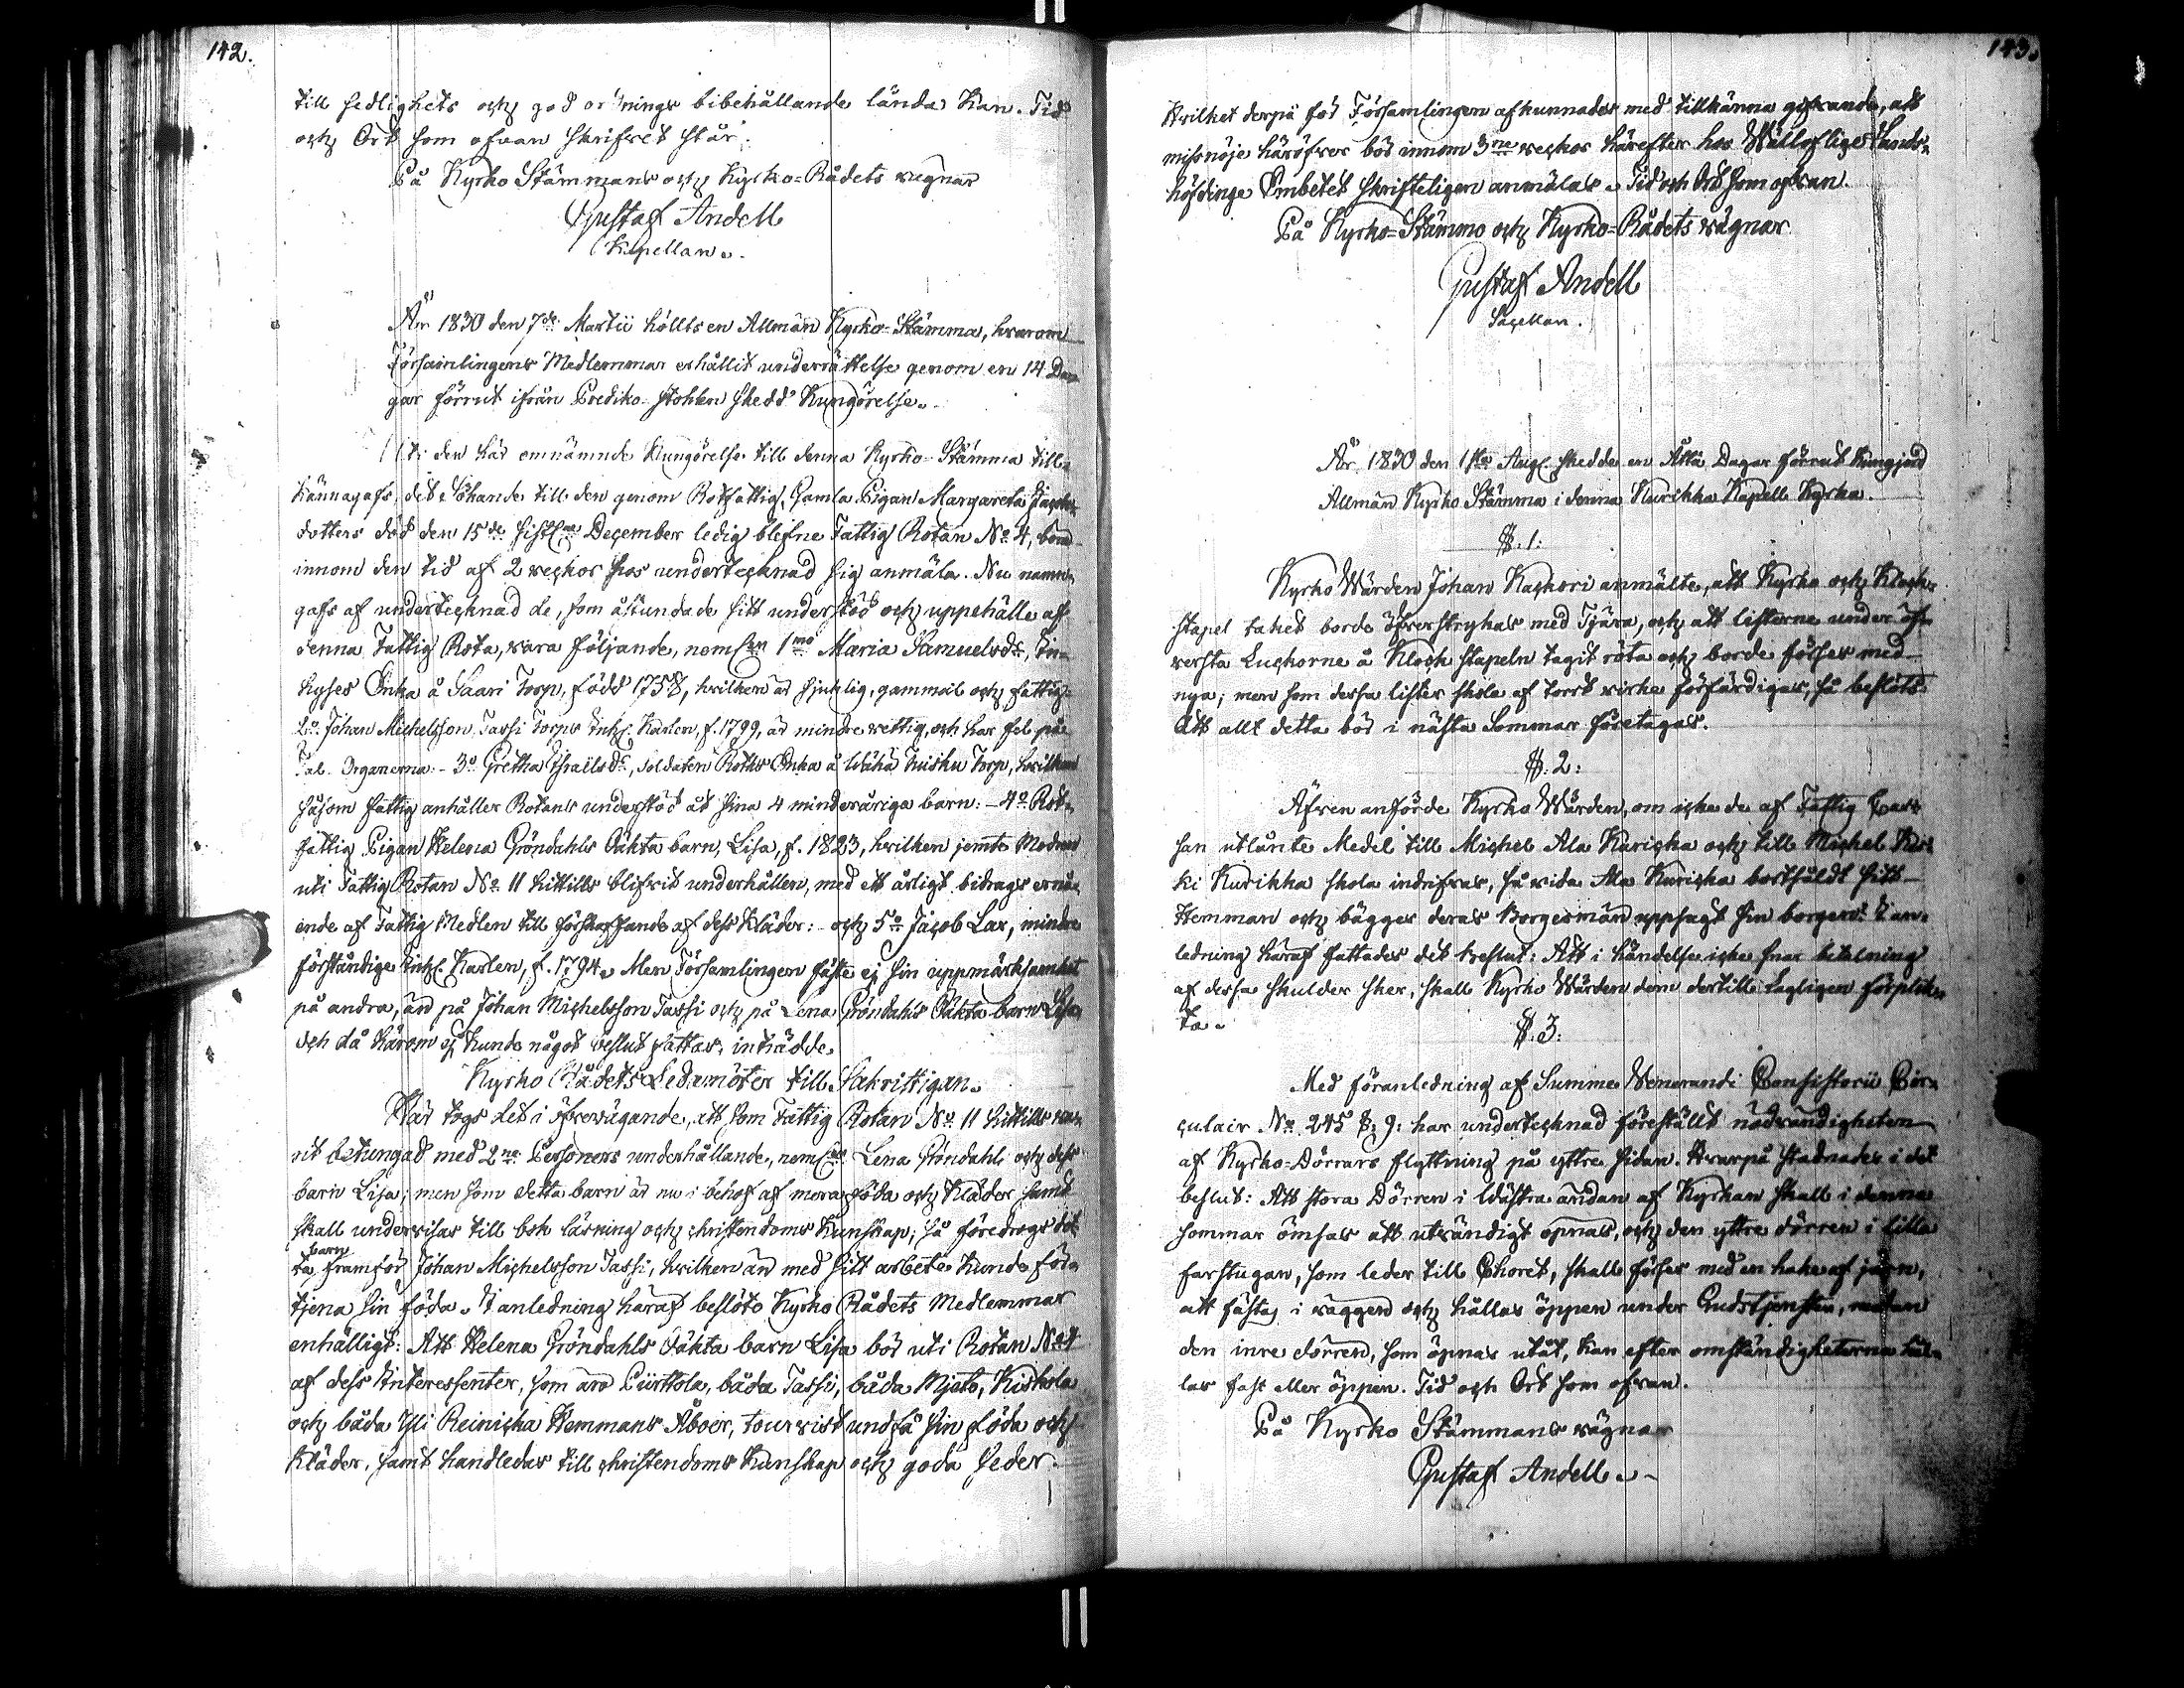 142.
till sedlighets och god ordnings bibehållande lända kan. Tid
och Ort som ofvan skrifvet står.
På Kyrko Stämmans och Kyrko-Rådets vägnar
Gustaf Andell
Kapellan.
År 1830 den 7de Martii hölts en Allmän Kyrko-Stämma, hvarom
Församlingens Medlemmar erhållit underrättelse genom en 14 Da-
gar förrut ifrån Prediko-stohlen skedd Kungörelse.
den här omnämnde Kungörelse till denna Kyrko-Stämma till-
kännagafs, det Sökande till den genom Rotfattig, Gamla Pigan Margareta
dotters död den 15de sistl. December ledig blefne Fattig Rotan No 4, borde
innom den tid af 2 veckor hos undertecknad sig anmäla. Nu namn-
gafs af undertecknad de, som åstundade sitt understöd och uppehälle af
denna Fattig Rota, vara följande, neml. 1mo Maria Samuelsdr, In-
hyses Enka å Saari Torp, född 1758, hvilken är sjuklig, gammal och fattig:
2o Johan Michelsson Tassi Torps Inh. Karlen, f. 1799, är mindre vettig, och har fel på
Tal-Organerna: - 3o Gretha Israilsdr, soldaten Roths Enka å Wähä Torp, hvilken
såsom fattig anhåller Rotans understöd åt sina 4 minderåriga barn: - 4o Rot-
fattig Pigan Helena Gröndahls Oäkta barn, Lisa, f. 1823, hvilken jemte Modren
uti Fattig Rotan No 11 hittills blifvit underhållen, med ett årligt bidrags ernå-
ende af Fattig Medlen till förskaffande af dess Kläder: - och 5o Jacob Lax, mindre
förståndige Inh. Karlen, f. 1794. Men Församlingen fäste ej sin uppmärksamhet
på andra, än på Johan Michelsson Tassi och på Lena Gröndahls Oäkta barn Lisa,
och då härom ej kunde något beslut fattas, inträdde
Kyrko Rådets Ledamöter till Sakristigan.
Här togs det i öfvervägande, att som Fattig Rotan No 11 hittills va-
rit betungad med 2ne Personers underhållande, neml. Lena Gröndahl och dess
barn Lisa; men som detta barn är nu i behof af mera föda och Kläder samt
skall undervisas till bok läsning och christendoms Kunskap; så föredrogs det-
ta barn framför Johan Michelsson Tassi, hvilken än med sitt arbete kunde för-
tjena sin föda. I anledning häraf beslöto Kyrko Rådets Medlemmar
enhälligt: Att Helena Gröndahls Oäkta barn Lisa bör uti Rotan No 4
af dess Interessenter, som äro Piirttola, båda Tassi, båda Mjeto, Kiskola
och båda Yli Reinicka Hemmans Åboer, tourvist undfå sin föda och
Kläder, samt handledas till christendoms Kunskap och goda seder.
143.
Hvilket derpå för Församlingen afkunnades med tillkänna gifvande, att
missnöje häröfver bör innom 3ne veckor härefter hos Wälloflige Lands-
höfdinge Embetet skrifteligen anmälas. Tid och Ort som ofvan.
På Kyrko-Stämmo och Kyrko-Rådets vägnar
Gustaf Andell
Sacellan.
År 1830 den 1sta Aug. skedde en Åtta Dagar förrut kungjord
Allmän Kyrko Stämma i denna Kurikka Kapell Kyrka.
§. 1:
Kyrko Wärden Johan Kackori anmälte, att Kyrko och Klock-
stapel taket borde öfverstrykas med Tjära, och att listerne under öf-
versta Luckorne å Klock stapeln tagit röta och borde förses med
nya; men som dessa lister skola af torrt virke förfärdigas, så beslöts:
Att allt detta bör i nästa Sommar företagas.
§. 2:
Äfven anförde Kyrko Wärden, om icke de af Fattig Cas-
san utlånte Medel till Michel Ala Karicka och till Michel
Kurikka skola indrifvas, så vida Ala Kuricka bortsåldt sitt
Hemman och bägges deras Borgesmän uppsagt sin borgen? I an-
ledning häraf fattades det beslut: Att i händelse icke snar betalning
af dessa skulder sker, skall Kyrko Wärden dem dertill Lagligen förplik-
ta.
§. 3:
Med föranledning af Summe Venerandi Consistorii Cir-
culair No 245 §: 9: har undertecknad föreställt nödvändigheten
af Kyrko-Dörrars flyttning på yttre sidan. Hvarpå stadnades i det
beslut: Att stora Dörren i Wästra ändan af Kyrkan skall i denna
sommar ömsas att utvändigt öpnas, och den yttre dörren i lilla
farstugan, som leder till Choret, skall förses med en hake af järn,
att fästas i väggen och hållas öppen under Gudstjensten, medan
den inre dörren, som öpnas utåt, kan efter omständigheterna hål-
las fast eller öppen. Tid och Ort som ofvan.
På Kyrko Stämmans vägnar
Gustaf Andell.